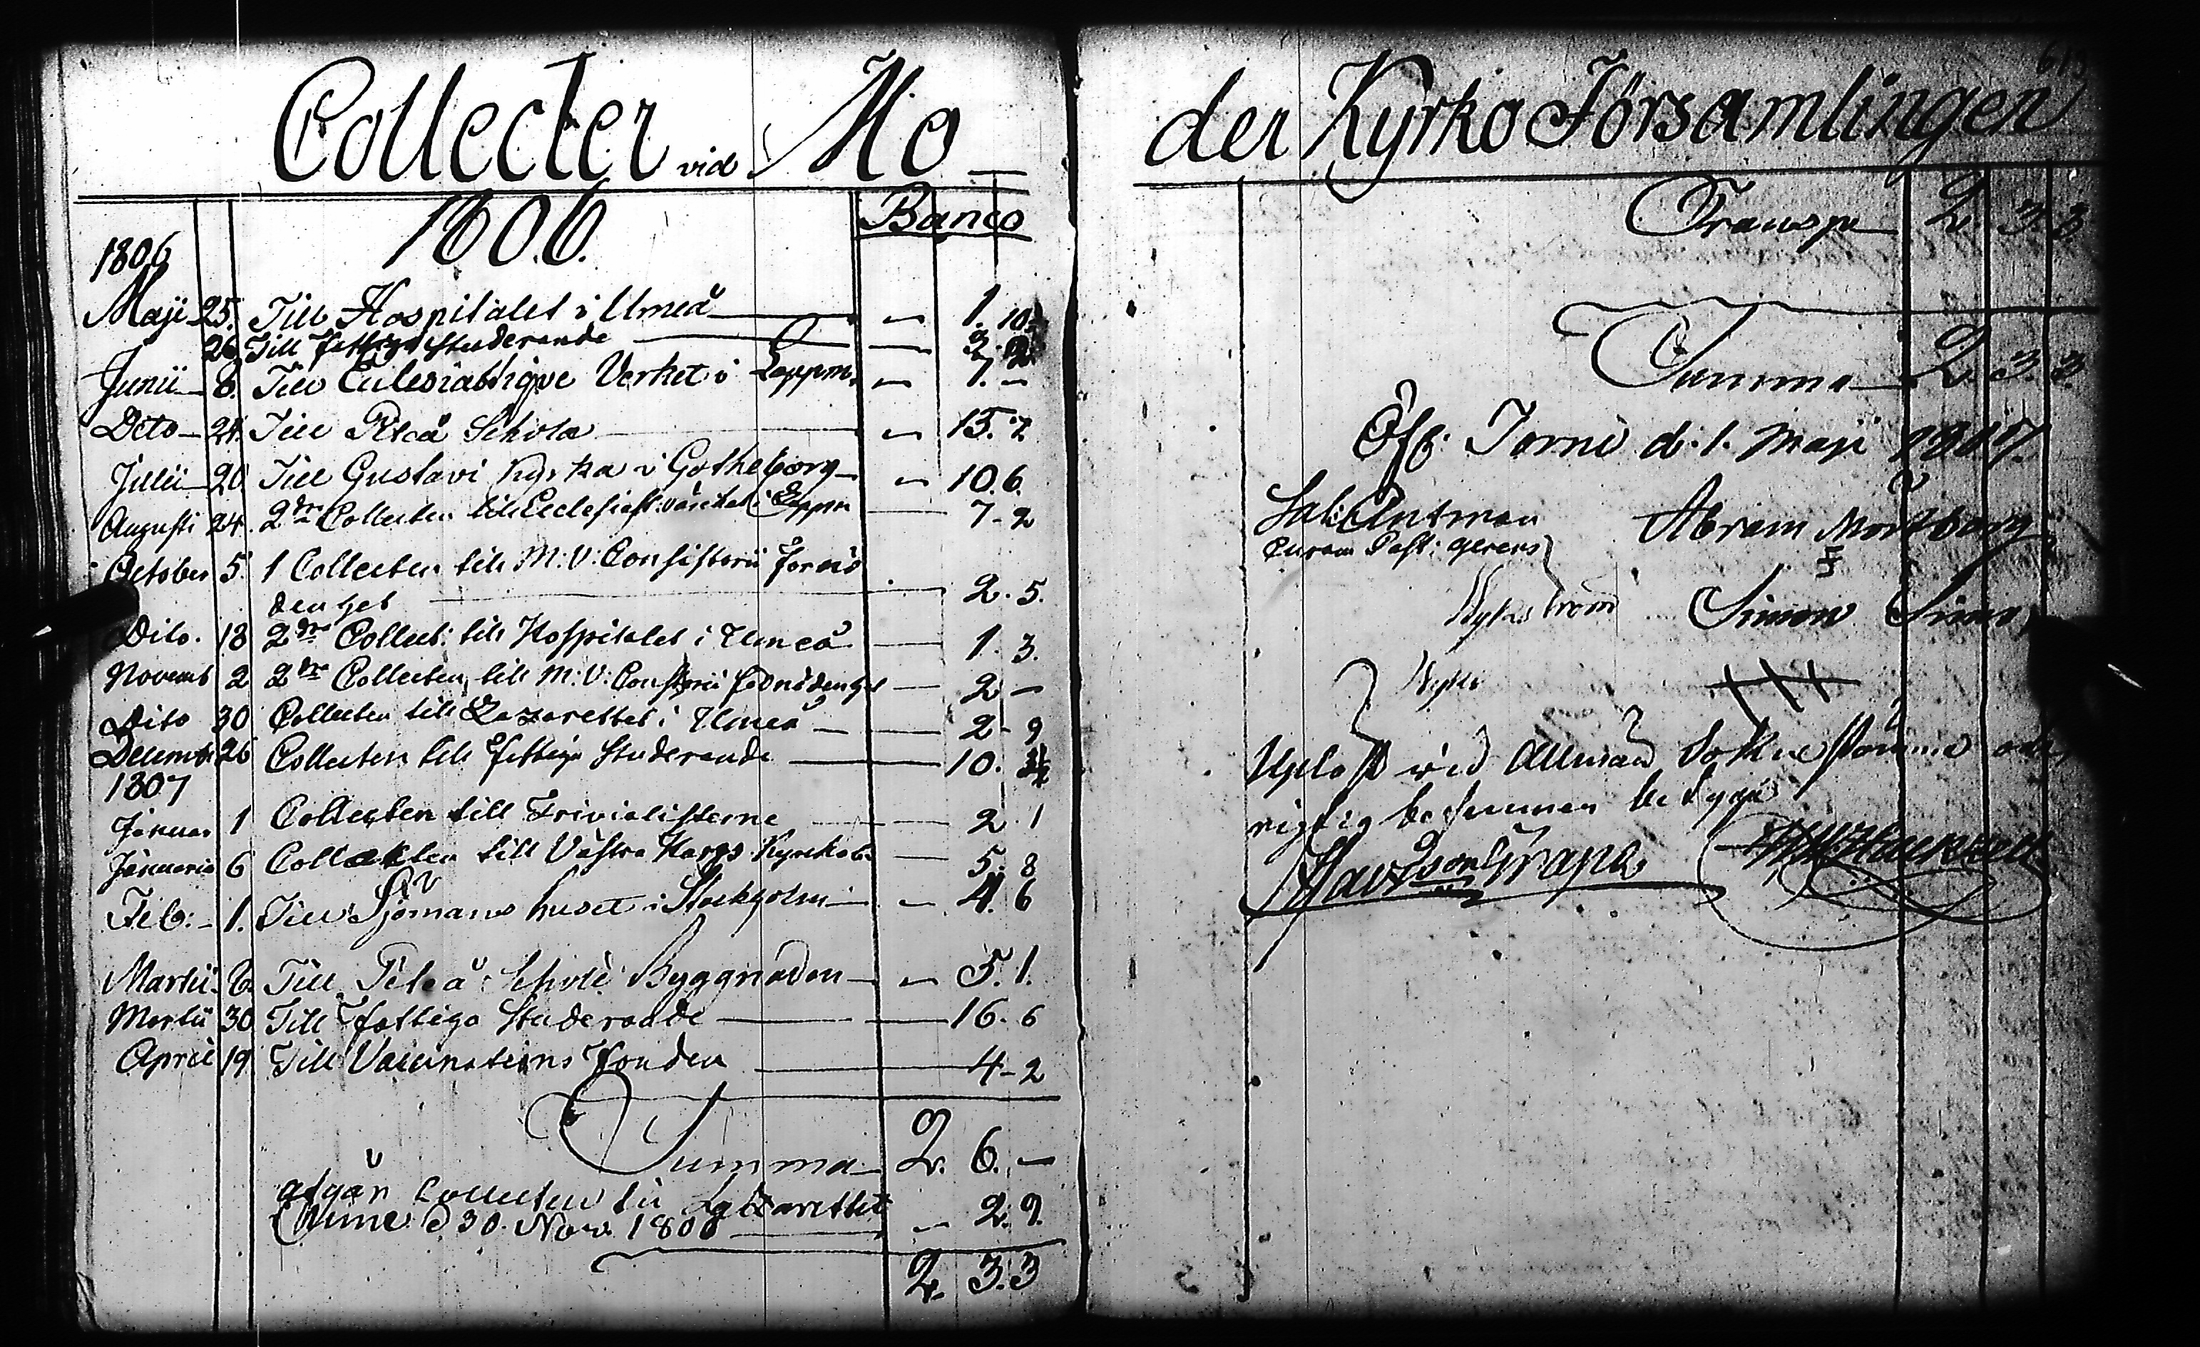 Collecter vid Mo
1806.
Banco
1806
Maji 25. Till Hospitalet i Umeå — 1. 10
26 Till fattiga studerande — 3.
Junii 8. Till Eclesiastique Verket i Lappm. — 7. —
Dito 24. Till Piteå Schola — 15. 2
Julii 20 Till Gustavi Kyrka i Gotheborg — 10. 6.
Augusti 24. 2dra Collecten till Ecclesiast: värcket i Lappm — 7 - 2
October 5. 1 Collecten till M: V: Consistorii förnö
denhet — 2. 5.
Dito. 18 2dra Collect: till Hospitalet i Umeå — 1. 3.
Novemb 2 2dra Collecten till M: V: Consistorii förnödenhet — 2 —
Dito 30 Collecten till Lazarettet i Umeå — 2 - 9
Decemb 26 Collecten till fattiga Studerande — 10.
1807
Januar 1 Collecten till Trivialisterne — 2. 1
Januarii 6 Collecten till Västra Kyrkob. — 5. 8
Feb: 1. Till Sjömans huset i Stockholm — 4. 6
Martii 6. Till Piteå Schole Byggnaden — 5. 1.
Martii 30 Till fattiga Studerande — 16. 6
April 19 Till Vaccinations Fonden — 4 - 2
Summa 2. 6. —
afgår Collecten till Latzarettet
Ume d 30. Nov. 1806 — 2. 9.
2. 3. 3
der Kyrko Församlingen
613
Transp 2. 3. 3
Summa 2. 3. 3.
Öff: Torne d. 1. Maji 1807.
Joh: Antman
Curam Past: gerens
Abram
Simon
Upläst wid Allmän Sokne stämma och
rigtig befunnen betyga
Grape